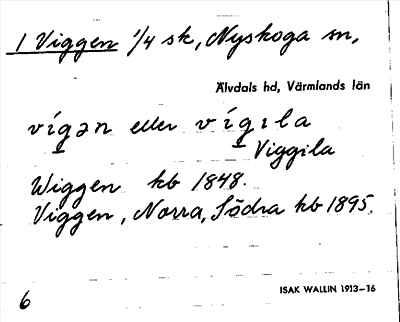 1 Viggen 1/4 sk, Nyskoga sn,
Älvdals hd, Värmlands län
vígən eller vígıla
Viggila
Wiggen kb 1848.
Viggen, Norra, Södra kb 1895.
6
ISAK WALLIN 1913-16